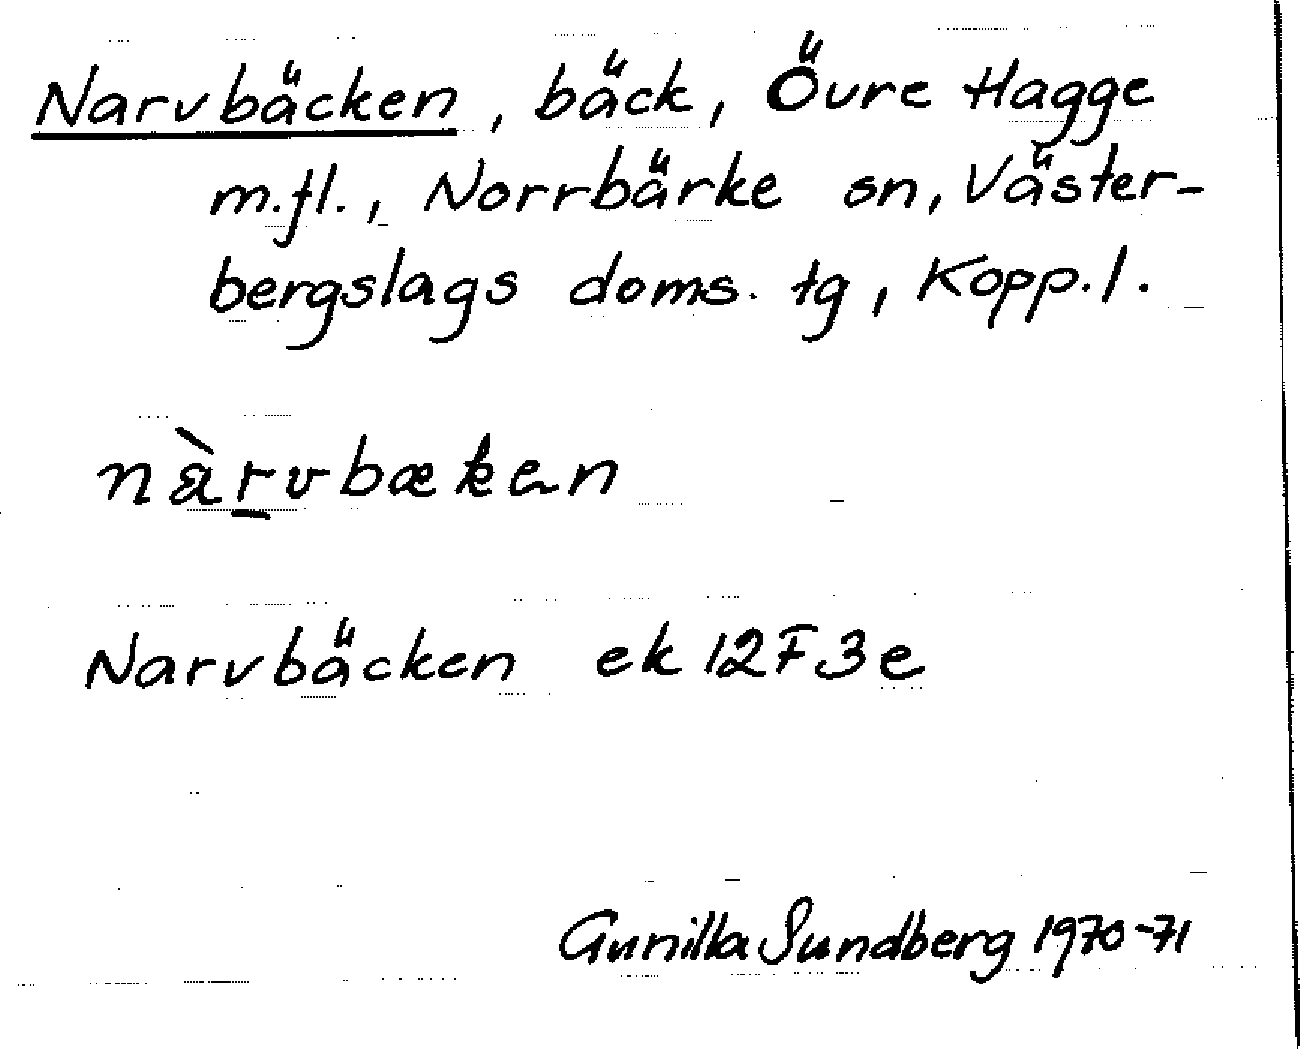 Narvbäcken, bäck, Övre Hagge
m.fl., Norrbärke sn, Väster-
bergslags doms. tg, Kopp. l.
nàrvbækən
Narvbäcken ek 12F3e
Gunilla Sundberg 1970-71